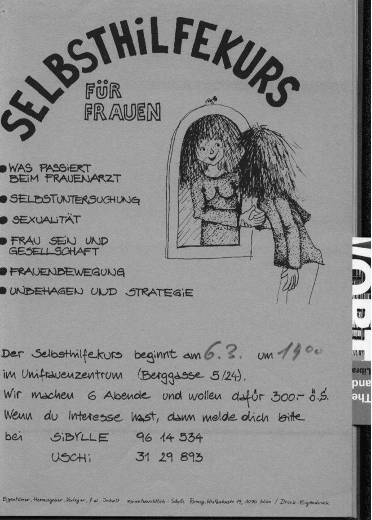 SELBSTHILFEKURS
FÜR
FRAUEN
WAS PASSIERT
BEIM FRAUENARZT
SELBSTUNTERSUCHUNG
SEXUALITÄT
FRAU SEIN UND
GESELLSCHAFT
FRAUENBEWEGUNG
UNBEHAGEN UND STRATEGIE
Der Selbsthilfekurs beginnt am 6.3. um 19 00
im Unifrauenzentrum (Berggasse 5/24).
Wir machen 6 Abende und wollen dafür 300.- ö.S.
Wenn du Interesse hast, dann melde dich bitte
bei SIBYLLE 96 14 534
USCHI 31 29 893
Eigentümer, Herausgeber, Verleger, f.d. Inhalt verantwortlich: Sibylle
Wien / Druck: Eigendruck
The
and